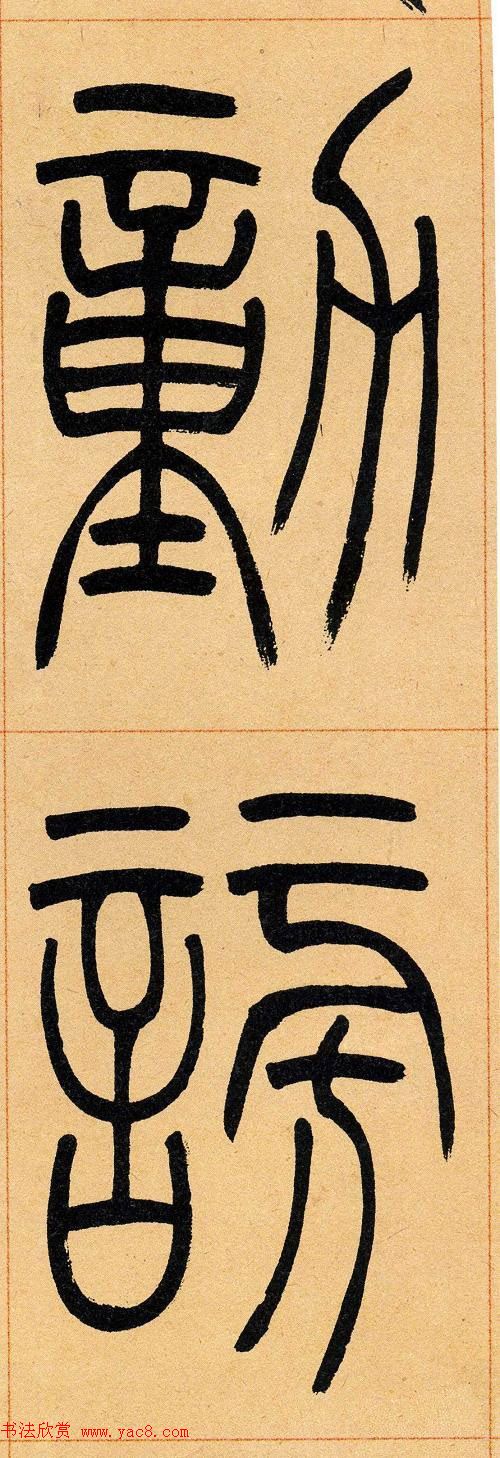 動謗
书法欣赏 www.yac8.com